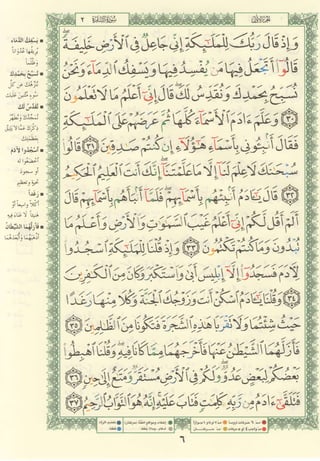 سورة البقرة ٢
وَإِذْ قَالَ رَبُّكَ لِلْمَلَٰٓئِكَةِ إِنِّى جَاعِلٌ فِى ٱلْأَرْضِ خَلِيفَةً
قَالُوٓا۟ أَتَجْعَلُ فِيهَا مَن يُفْسِدُ فِيهَا وَيَسْفِكُ ٱلدِّمَآءَ وَنَحْنُ
نُسَبِّحُ بِحَمْدِكَ وَنُقَدِّسُ لَكَ قَالَ إِنِّىٓ أَعْلَمُ مَا لَا تَعْلَمُونَ
٣٠ وَعَلَّمَ ءَادَمَ ٱلْأَسْمَآءَ كُلَّهَا ثُمَّ عَرَضَهُمْ عَلَى ٱلْمَلَٰٓئِكَةِ
فَقَالَ أَنۢبِـُٔونِى بِأَسْمَآءِ هَٰٓؤُلَآءِ إِن كُنتُمْ صَٰدِقِينَ ٣١ قَالُوا۟
سُبْحَٰنَكَ لَا عِلْمَ لَنَآ إِلَّا مَا عَلَّمْتَنَآ إِنَّكَ أَنتَ ٱلْعَلِيمُ ٱلْحَكِيمُ
٣٢ قَالَ يَٰٓـَٔادَمُ أَنۢبِئْهُم بِأَسْمَآئِهِمْ فَلَمَّآ أَنۢبَأَهُم بِأَسْمَآئِهِمْ قَالَ
أَلَمْ أَقُل لَّكُمْ إِنِّىٓ أَعْلَمُ غَيْبَ ٱلسَّمَٰوَٰتِ وَٱلْأَرْضِ وَأَعْلَمُ مَا
تُبْدُونَ وَمَا كُنتُمْ تَكْتُمُونَ ٣٣ وَإِذْ قُلْنَا لِلْمَلَٰٓئِكَةِ ٱسْجُدُوا۟
لِءَادَمَ فَسَجَدُوٓا۟ إِلَّآ إِبْلِيسَ أَبَىٰ وَٱسْتَكْبَرَ وَكَانَ مِنَ ٱلْكَٰفِرِينَ
٣٤ وَقُلْنَا يَٰٓـَٔادَمُ ٱسْكُنْ أَنتَ وَزَوْجُكَ ٱلْجَنَّةَ وَكُلَا مِنْهَا رَغَدًا
حَيْثُ شِئْتُمَا وَلَا تَقْرَبَا هَٰذِهِ ٱلشَّجَرَةَ فَتَكُونَا مِنَ ٱلظَّٰلِمِينَ ٣٥
فَأَزَلَّهُمَا ٱلشَّيْطَٰنُ عَنْهَا فَأَخْرَجَهُمَا مِمَّا كَانَا فِيهِ وَقُلْنَا ٱهْبِطُوا۟
بَعْضُكُمْ لِبَعْضٍ عَدُوٌّ وَلَكُمْ فِى ٱلْأَرْضِ مُسْتَقَرٌّ وَمَتَٰعٌ إِلَىٰ حِينٍ ٣٦
فَتَلَقَّىٰٓ ءَادَمُ مِن رَّبِّهِۦ كَلِمَٰتٍ فَتَابَ عَلَيْهِ إِنَّهُۥ هُوَ ٱلتَّوَّابُ ٱلرَّحِيمُ ٣٧
٦